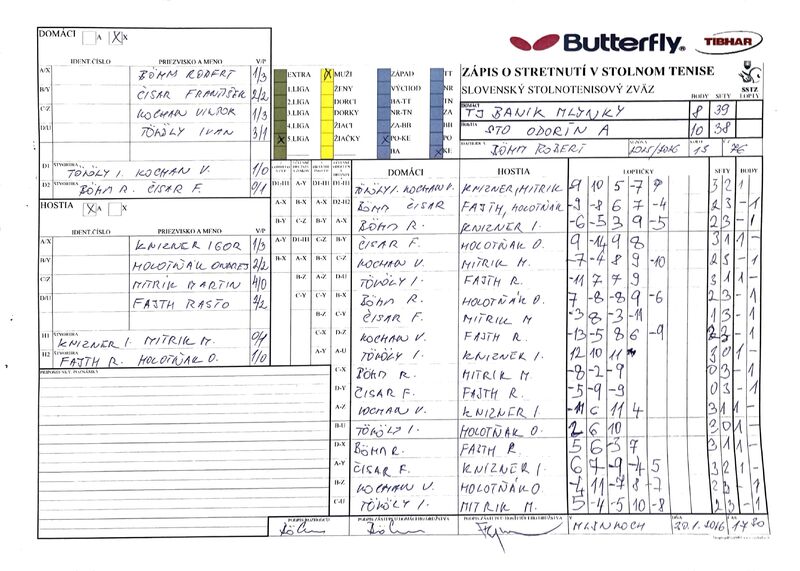 Butterfly
TIBHAR
DOMÁCI A X
IDENT.ČÍSLO PRIEZVISKO A MENO V/P
A/X BÖHM ROBERT 1/3
B/Y ČISAR FRANTIŠEK 2/2
C/Z KOCHAN VIKTOR 1/3
D/U TÖKÖLY IVAN 3/1
D1 ŠTVORHRA TÖKÖLY I. KOCHAN V. 1/0
D2 ŠTVORHRA BÖHM R. ČISAR F. 0/1
HOSTIA A X
IDENT.ČÍSLO PRIEZVISKO A MENO V/P
A/X KNIZNER IGOR 1/3
B/Y HOLOTŇÁK ONDREJ 2/2
C/Z MITRIK MARTIN 4/0
D/U FAJTH RASTO 2/2
H1 ŠTVORHRA KNIZNER I. MITRIK M. 0/1
H2 ŠTVORHRA FAJTH R. HOLOTŇÁK O. 1/0
PRIPOMIENKY, POZNÁMKY
EXTRA X MUŽI ZÁPAD TT
1.LIGA ŽENY VÝCHOD NR
2.LIGA DORCI BA-TT TN
3.LIGA DORKY NR-TN ZA
4.LIGA ŽIACI ZA-BB BB
X 5.LIGA ŽIAČKY X PO-KE PO
BA X KE
ZÁPIS O STRETNUTÍ V STOLNOM TENISE
SLOVENSKÝ STOLNOTENISOVÝ ZVÄZ SSTZ
BODY SETY LOPTY
DOMÁCI TJ BANÍK MLYNKY 8 39
HOSTIA STO ODORÍN A 10 38
BÖHM ROBERT SEZÓNA 2015/2016 KOLO 15 76
DOMÁCI HOSTIA LOPTIČKY SETY BODY
D1-H1 TÖKÖLY I. KOCHAN V. KNIZNER, MITRIK 9 10 5 -7 9 3 2 1 -
D2-H2 BÖHM ČISAR FAJTH, HOLOTŇÁK -9 -8 6 7 -4 2 3 - 1
A-X BÖHM R. KNIZNER I. -6 -5 3 9 -5 2 3 - 1
B-Y ČISAR F. HOLOTŇÁK O. 9 -14 9 8 3 1 1 -
C-Z KOCHAN V. MITRIK M. -7 -4 8 9 -10
D-U TÖKÖLY I. FAJTH R. -11 7 7 9 3 1 1 -
B-Y BÖHM R. HOLOTŇÁK O. 7 -8 -8 9 -6 2 3 - 1
C-Z ČISAR F. MITRIK M -3 8 -3 -11 1 3 - 1
D-Z KOCHAN V. FAJTH R. -13 -5 8 6 -9 2 3 - 1
A-U TÖKÖLY I. KNIZNER I. 12 10 11 3 0 1 -
C-X BÖHM R. MITRIK M. -8 -2 -9 0 3 - 1
D-Y ČISAR F. FAJTH R. -5 -9 -9 0 3 - 1
A-Z KOCHAN V. KNIZNER I. -11 6 11 4 3 1 1 -
B-U TÖKÖLY I. HOLOTŇÁK O. 2 6 10 3 0 1 -
D-X BÖHM R. FAJTH R. 5 6 -3 7 3 1 1 -
A-Y ČISAR F. KNIZNER I. 6 -7 9 -4 5 3 2 1 -
B-Z KOCHAN V. HOLOTŇÁK O -4 11 -7 8 -7 2 3 - 1
C-U TÖKÖLY I. MITRIK M. 5 -4 -5 10 -8 2 3 - 1
PODPIS ROZHODCU PODPIS ZÁSTUPCU DOMÁCEHO DRUŽSTVA PODPIS ZÁSTUPCU HOSŤUJÚCEHO DRUŽSTVA
V MLYNKOCH DŇA 30.1.2016 ČAS 17 30